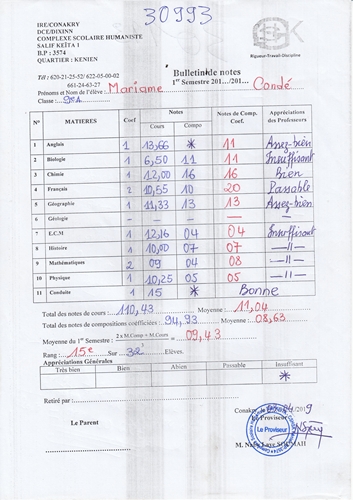 30993
IRE/CONAKRY
DCE/DIXINN
COMPLEXE SCOLAIRE HUMANISTE
SALIF KEÏTA 1
B.P : 3574
QUARTIER : KENIEN
Rigueur-Travail-Discipline
Tél : 620-21-25-52/ 622-05-00-02
661-24-63-27
Bulletin de notes
1er Semestre 201..../201....
Prénoms et Nom de l'élève : Mariame Condé
Classe :
N° MATIERES Coef Notes Notes de Comp. Coef Appréciations des Professeurs
Cours Compo
1 Anglais 1 13,66 * 11 Assez-bien
2 Biologie 1 6,50 11 11 Insuffisant
3 Chimie 1 12,00 16 16 Bien
4 Français 2 10,55 10 20 Passable
5 Géographie 1 11,33 13 13 Assez-bien
6 Géologie – – – –
7 E.C.M 1 12,16 04 04 Insuffisant
8 Histoire 1 10,00 07 07 –//–
9 Mathématiques 2 09 04 08 –//–
10 Physique 1 10,25 05 05 –//–
11 Conduite 1 15 * Bonne
Total des notes de cours : 110,43 Moyenne : 11,04
Total des notes de compositions coéfficiées : 94,93 Moyenne : 08,63
Moyenne du 1er Semestre : 2 x M.Comp + M.Cours / 3 = 09,43
Rang : 15e Sur 32 Elèves.
Appréciations Générales
Très bien Bien Abien Passable Insuffisant
*
Retiré par :
Conakry, le /04/2019
Le Parent
Le Proviseur
Le Proviseur